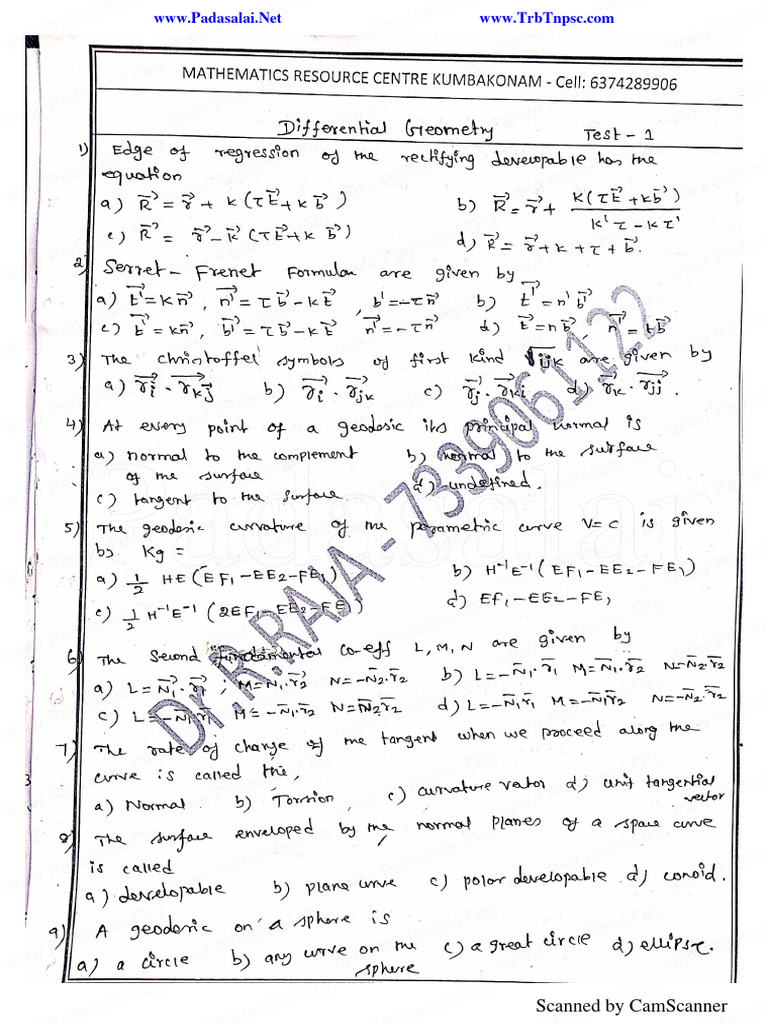 www.Padasalai.Net www.TrbTnpsc.com
MATHEMATICS RESOURCE CENTRE KUMBAKONAM - Cell: 6374289906
Differential Geometry Test - 1
1) Edge of regression of the rectifying developable has the
equation
a) R⃗ = r⃗ + k (τ t⃗ + k b⃗) b) R⃗ = r⃗ + k(τ t⃗ + k b⃗) / k'τ - kτ'
c) R⃗ = r⃗ - k⃗ (τ t⃗ + k b⃗) d) R⃗ = r⃗ + k + τ + b⃗.
2) Serret - Frenet Formulae are given by
a) t⃗' = k n⃗, n⃗' = τ b⃗ - k t⃗, b' = -τ n⃗ b) t⃗' = n' b⃗
c) t⃗' = k n⃗, b⃗' = τ b⃗ - k t⃗ n⃗' = -τ n⃗ d) t⃗ = n b⃗ n⃗' = t b⃗
3) The christoffel symbols of first kind Γijk are given by
a) r⃗i · r⃗kj b) r⃗i · r⃗jk c) r⃗j · r⃗ki d) r⃗k · r⃗jj.
4) At every point of a geodesic its principal normal is
a) normal to the complement b) normal to the surface
of the surface d) undefined.
c) tangent to the surface
5) The geodesic curvature of the parametric curve V = C is given
by Kg =
a) 1/2 HE (EF₁ - EE₂ - FE₁) b) H⁻¹E⁻¹ (EF₁ - EE₂ - FE₁)
c) 1/2 H⁻¹E⁻¹ (2EF₁ - EE₂ - FE₁) d) EF₁ - EE₂ - FE₁
6) The Second fundamental co-eff L, M, N are given by
a) L = N̄₁·r̄₁, M = N̄₁·r̄₂ N = -N̄₂·r̄₂ b) L = -N̄₁·r̄₁ M = N̄₁·r̄₂ N = N̄₂·r̄₂
c) L = -N̄₁·r̄₁ M = -N̄₁·r̄₂ N = N̄₂·r̄₂ d) L = -N̄₁·r̄₁ M = -N̄₁·r̄₂ N = -N̄₂·r̄₂
7) The rate of change of the tangent when we proceed along the
curve is called the,
a) Normal b) Torsion c) curvature vector d) unit tangential
vector
8) The surface enveloped by the normal planes of a space curve
is called
a) developable b) plane curve c) polar developable d) conoid.
9) A geodesic on a sphere is
a) a circle b) any curve on the c) a great circle d) ellipse.
sphere
Dr.R.RAJA - 7339061122
Padasalai
Scanned by CamScanner